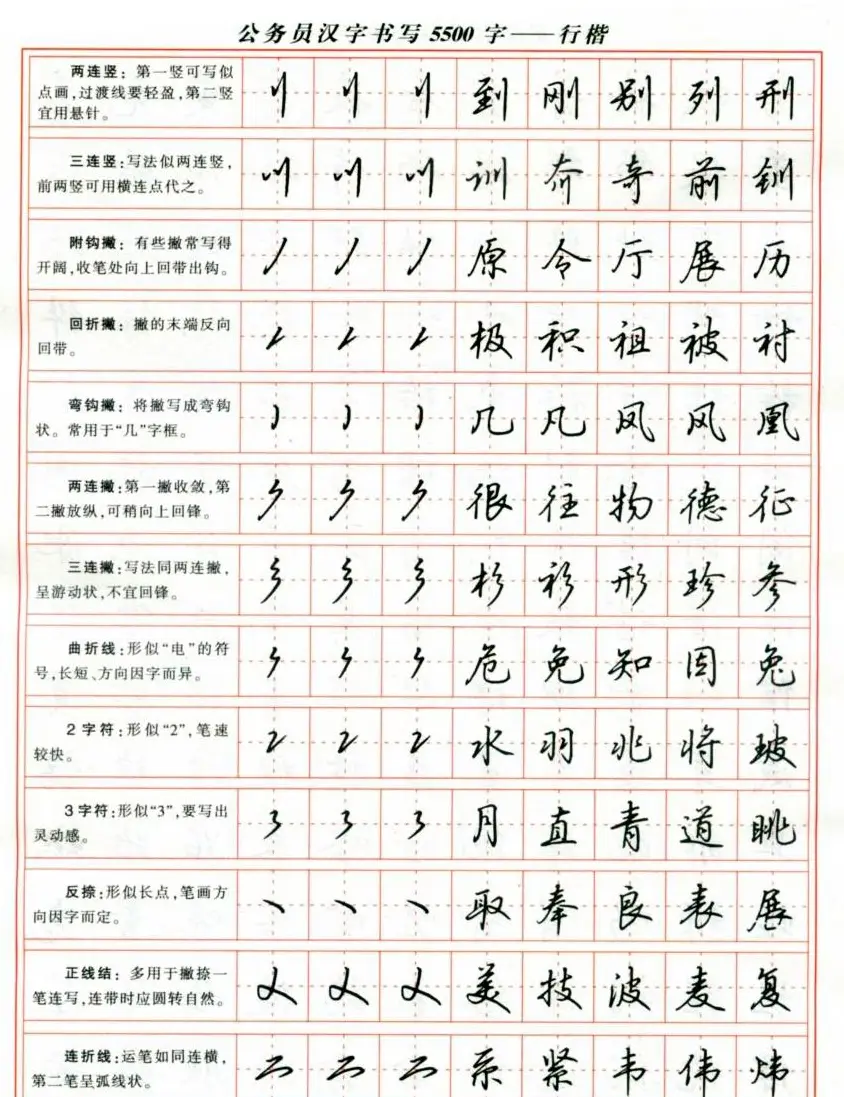 公务员汉字书写5500字——行楷
两连竖：第一竖可写似
点画，过渡线要轻盈，第二竖
宜用悬针。
到 刚 别 列 刑
三连竖：写法似两连竖，
前两竖可用横连点代之。
训 奔 奇 前 钏
附钩撇：有些撇常写得
开阔，收笔处向上回带出钩。
原 令 厅 展 历
回折撇：撇的末端反向
回带。
极 积 祖 被 衬
弯钩撇：将撇写成弯钩
状。常用于“几”字框。
几 凡 凤 风 凰
两连撇：第一撇收敛，第
二撇放纵，可稍向上回锋。
很 往 物 德 征
三连撇：写法同两连撇，
呈游动状，不宜回锋。
杉 衫 形 珍 参
曲折线：形似“电”的符
号，长短、方向因字而异。
危 免 知 因 兔
2字符：形似“2”，笔速
较快。
水 羽 兆 将 玻
3字符：形似“3”，要写出
灵动感。
月 直 青 道 眺
反捺：形似长点，笔画方
向因字而定。
取 奉 良 表 展
正线结：多用于撇捺一
笔连写，连带时应圆转自然。
美 技 波 麦 复
连折线：运笔如同连横，
第二笔呈弧线状。
系 紧 韦 伟 炜